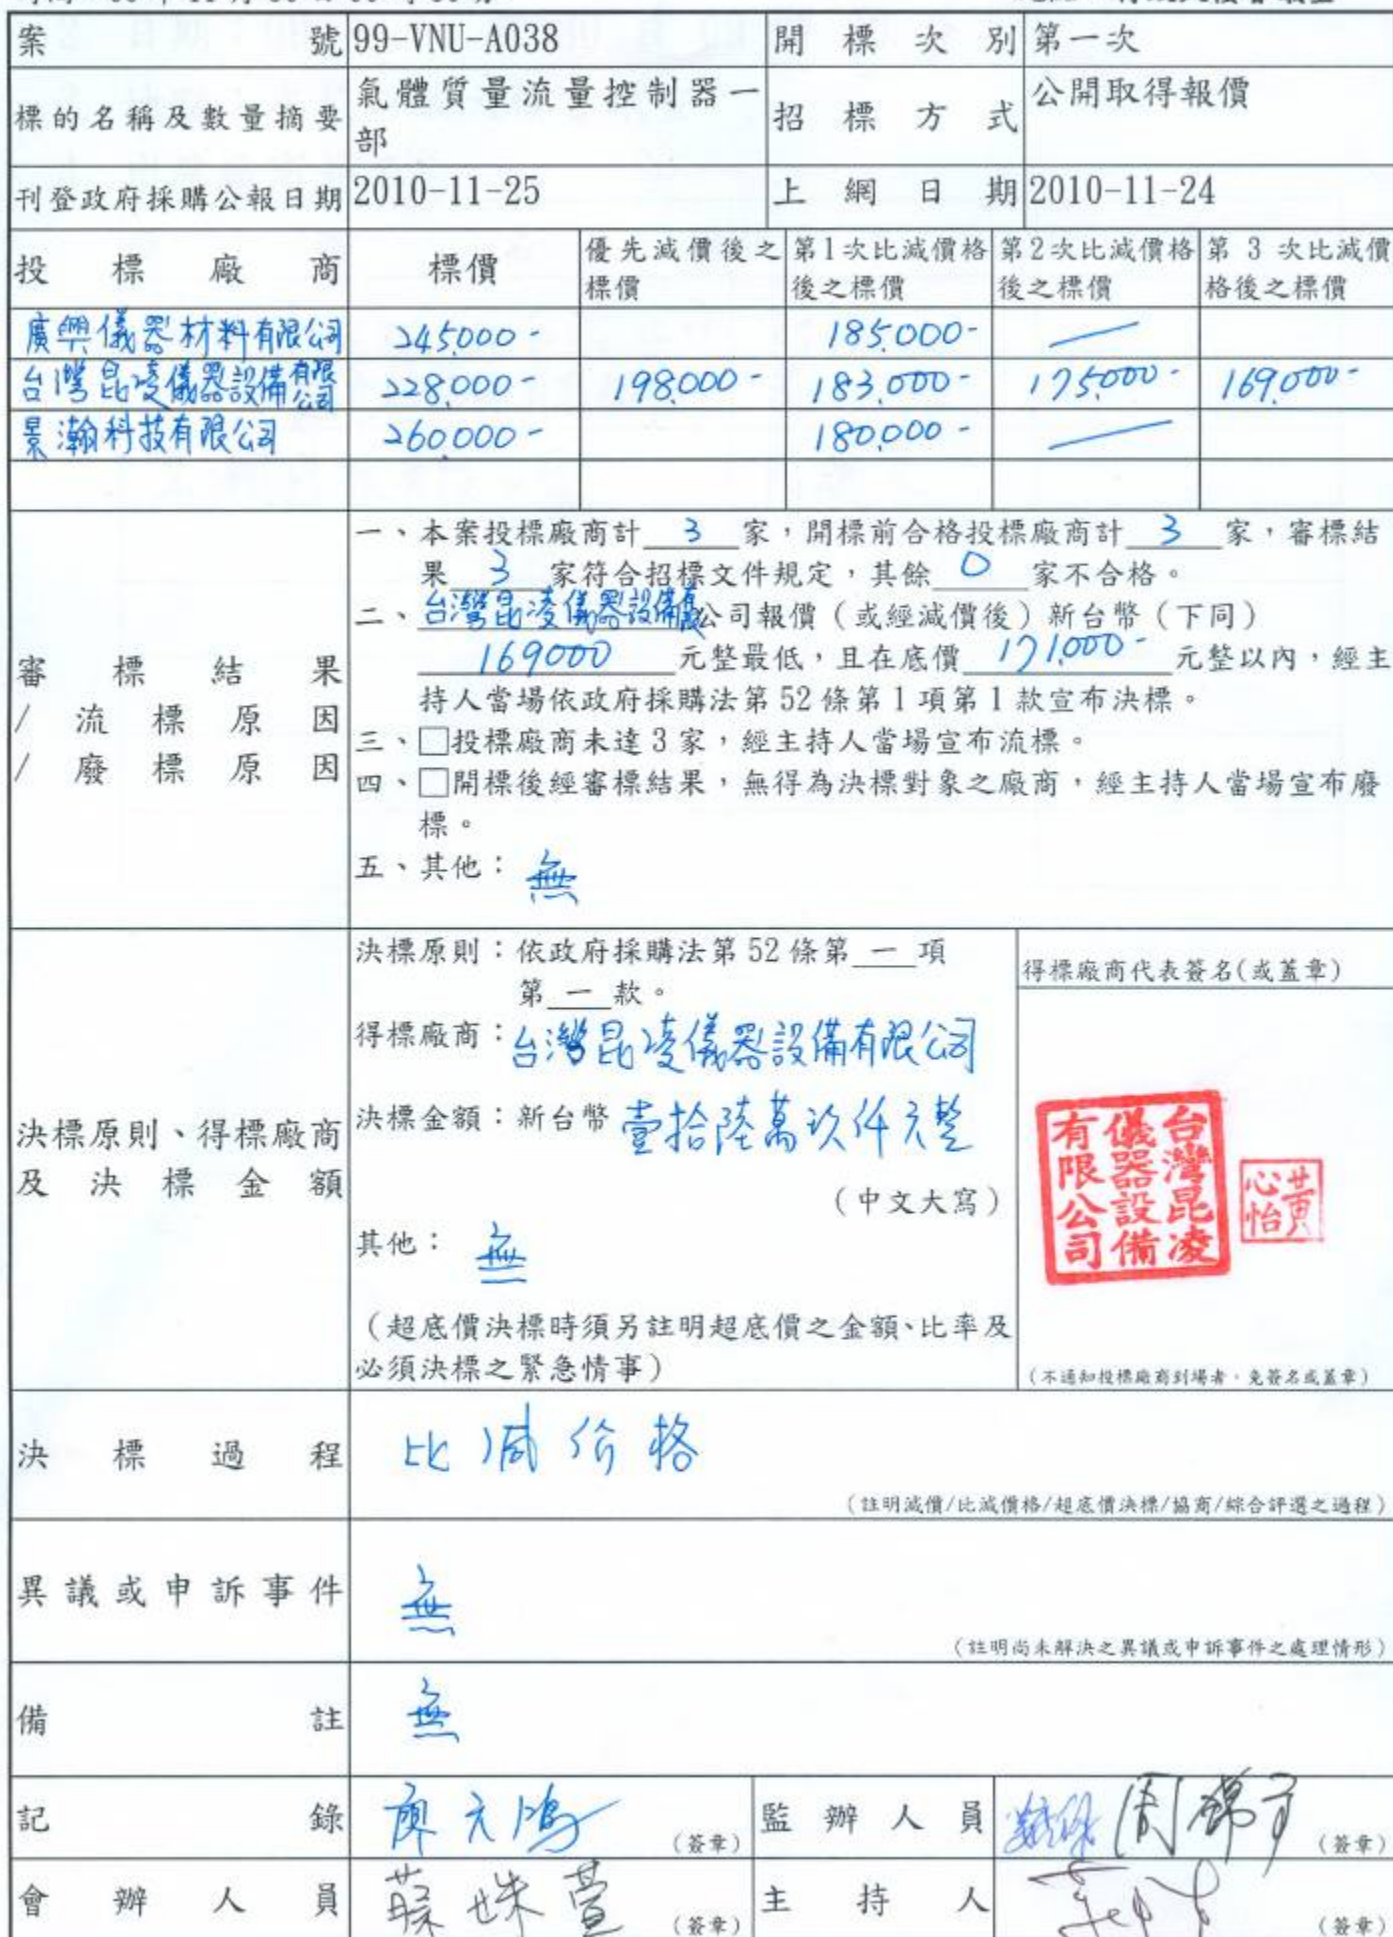 案號 99-VNU-A038 開標次別 第一次
標的名稱及數量摘要 氣體質量流量控制器一
部 招標方式 公開取得報價
刊登政府採購公報日期 2010-11-25 上網日期 2010-11-24
投標廠商 標價 優先減價後之標價 第1次比減價格後之標價 第2次比減價格後之標價 第 3 次比減價格後之標價
廣興儀器材料有限公司 245,000- 185,000- —
台灣昆凌儀器設備有限公司 228,000- 198,000- 183,000- 175,000- 169,000-
景瀚科技有限公司 260,000- 180,000- —
審標結果
/流標原因
/廢標原因
一、本案投標廠商計 3 家,開標前合格投標廠商計 3 家,審標結
果 3 家符合招標文件規定,其餘 0 家不合格。
二、台灣昆凌儀器設備有限公司報價(或經減價後)新台幣(下同)
169000 元整最低,且在底價 171,000- 元整以內,經主
持人當場依政府採購法第 52 條第 1 項第 1 款宣布決標。
三、□投標廠商未達 3 家,經主持人當場宣布流標。
四、□開標後經審標結果,無得為決標對象之廠商,經主持人當場宣布廢
標。
五、其他:無
決標原則、得標廠商
及決標金額
決標原則:依政府採購法第 52 條第 一 項
第 一 款。
得標廠商:台灣昆凌儀器設備有限公司
決標金額:新台幣 壹拾陸萬玖仟元整
(中文大寫)
其他:無
(超底價決標時須另註明超底價之金額、比率及
必須決標之緊急情事)
得標廠商代表簽名(或蓋章)
台灣昆凌
儀器設備
有限公司
黃
心怡
(不通知投標廠商到場者,免簽名或蓋章)
決標過程 比減价格
(註明減價/比減價格/超底價決標/協商/綜合評選之過程)
異議或申訴事件 無
(註明尚未解決之異議或申訴事件之處理情形)
備註 無
記錄 (簽章) 監辦人員 (簽章)
會辦人員 (簽章) 主持人 (簽章)